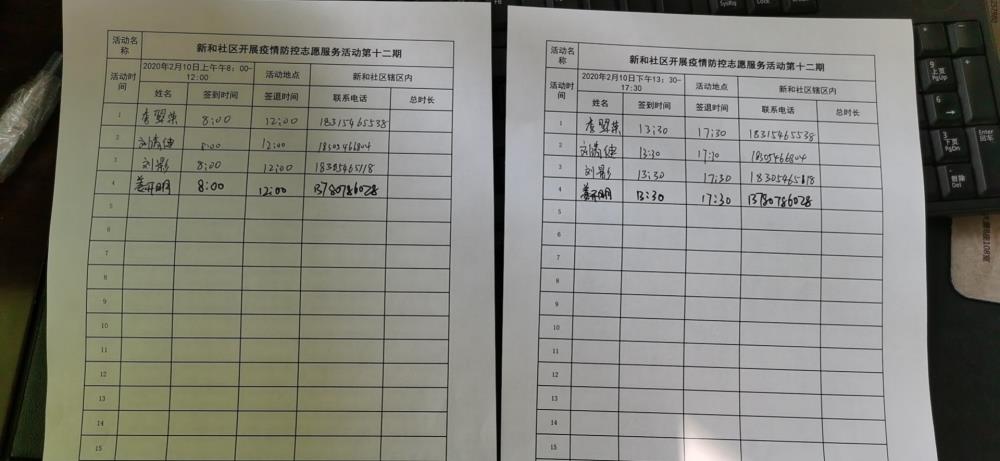 活动名称 新和社区开展疫情防控志愿服务活动第十二期
活动时间 2020年2月10日上午午8：00-12:00 活动地点 新和社区辖区内
姓名 签到时间 签退时间 联系电话 总时长
1 李翠荣 8:00 12:00 18315465538
2 刘清健 8:00 12:00 18505466804
3 刘影 8:00 12:00 18305465118
4 姜开明 8:00 12:00 13780786028
5
6
7
8
9
10
11
12
13
14
15
活动名称 新和社区开展疫情防控志愿服务活动第十二期
活动时间 2020年2月10日下午13：30-17:30 活动地点 新和社区辖区内
姓名 签到时间 签退时间 联系电话 总时长
1 李翠荣 13:30 17:30 18315465538
2 刘清健 13:30 17:30 18505466804
3 刘影 13:30 17:30 18305465118
4 姜开明 13:30 17:30 13780786028
5
6
7
8
9
10
11
12
13
14
15
SysRq
Lock
9
上页
PgUp
6
3
下页
PgDn
Enter
回车
删除
Del